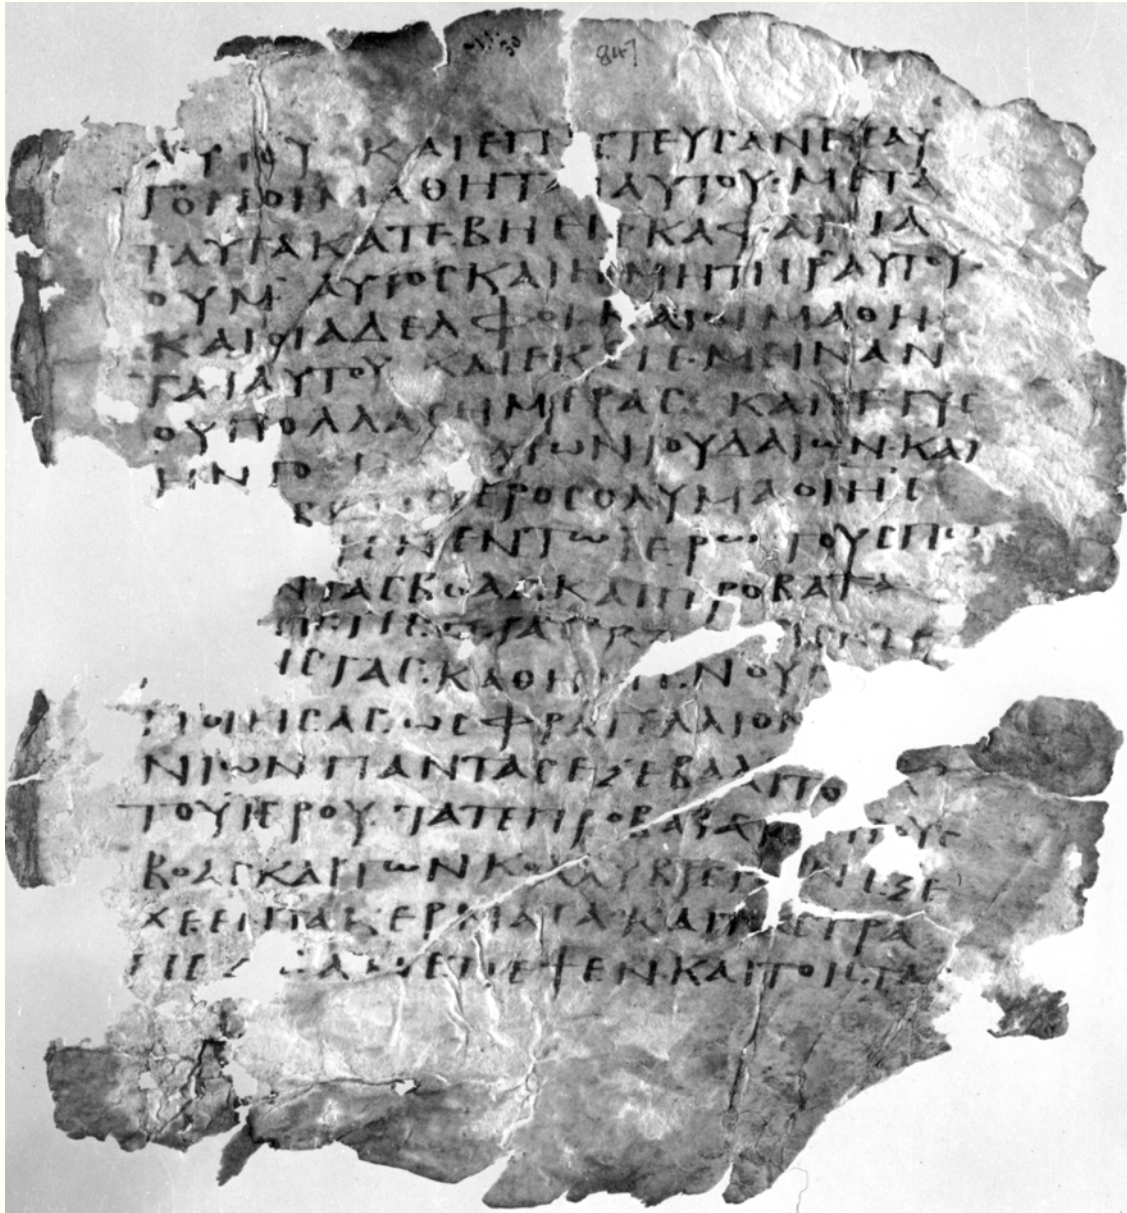 ΑΥΤΟΥ ΚΑΙΕΠΙϹΤΕΥϹΑΝΕΙϹΑΥ
ΤΟΝΟΙΜΑΘΗΤΑΙΑΥΤΟΥ·ΜΕΤΑ
ΤΑΥΤΑΚΑΤΕΒΗΕΙϹΚΑΦΑΡΝΑ
ΟΥΜ· ΑΥΤΟϹΚΑΙΗΜΗΤΗΡΑΥΤΟΥ·
ΚΑΙΟΙΑΔΕΛΦΟΙΚΑΙΟΙΜΑΘΗ
ΤΑΙΑΥΤΟΥ ΚΑΙΕΚΕΙΕΜΕΙΝΑΝ
ΟΥΠΟΛΛΑϹΗΜΕΡΑϹ· ΚΑΙΕΓΓΥϹ
ΗΝΤΟ ΤΩΝΙΟΥΔΑΙΩΝ·ΚΑΙ
ΙΕΡΟϹΟΛΥΜΑΟΙΗϹ
ΡΕΝΕΝΤΩΙΕΡΩ ΤΟΥϹΠΩ
ΝΤΑϹΒΟΑϹ·ΚΑΙΠΡΟΒΑΤΑ
ΠΕΡΙϹΤΕΡΑϹ
ΙϹΤΑϹ·ΚΑΘΗΜΕΝΟΥϹ
ΠΟΙΗϹΑϹ·ΩϹΦΡΑΓΕΛΛΙΟΝ
ΝΙΩΝΠΑΝΤΑϹΕΞΕΒΑΛ
ΤΟΥΙΕΡΟΥ·ΤΑΤΕΠΡΟΒΑΤΑΚΑΙΤΟΥϹ
ΒΟΑϹΚΑΙΤΩΝΚΟΛΛΥΒΙϹΤΩΝΕΞΕ
ΧΕΕΝΤΑΚΕΡΜΑΤΑ·ΚΑΙΤΑϹΤΡΑ
ΠΕΖΑϹΑΝΕΤΡΕΨΕΝ·ΚΑΙΤΟΙϹΤΑϹ
847